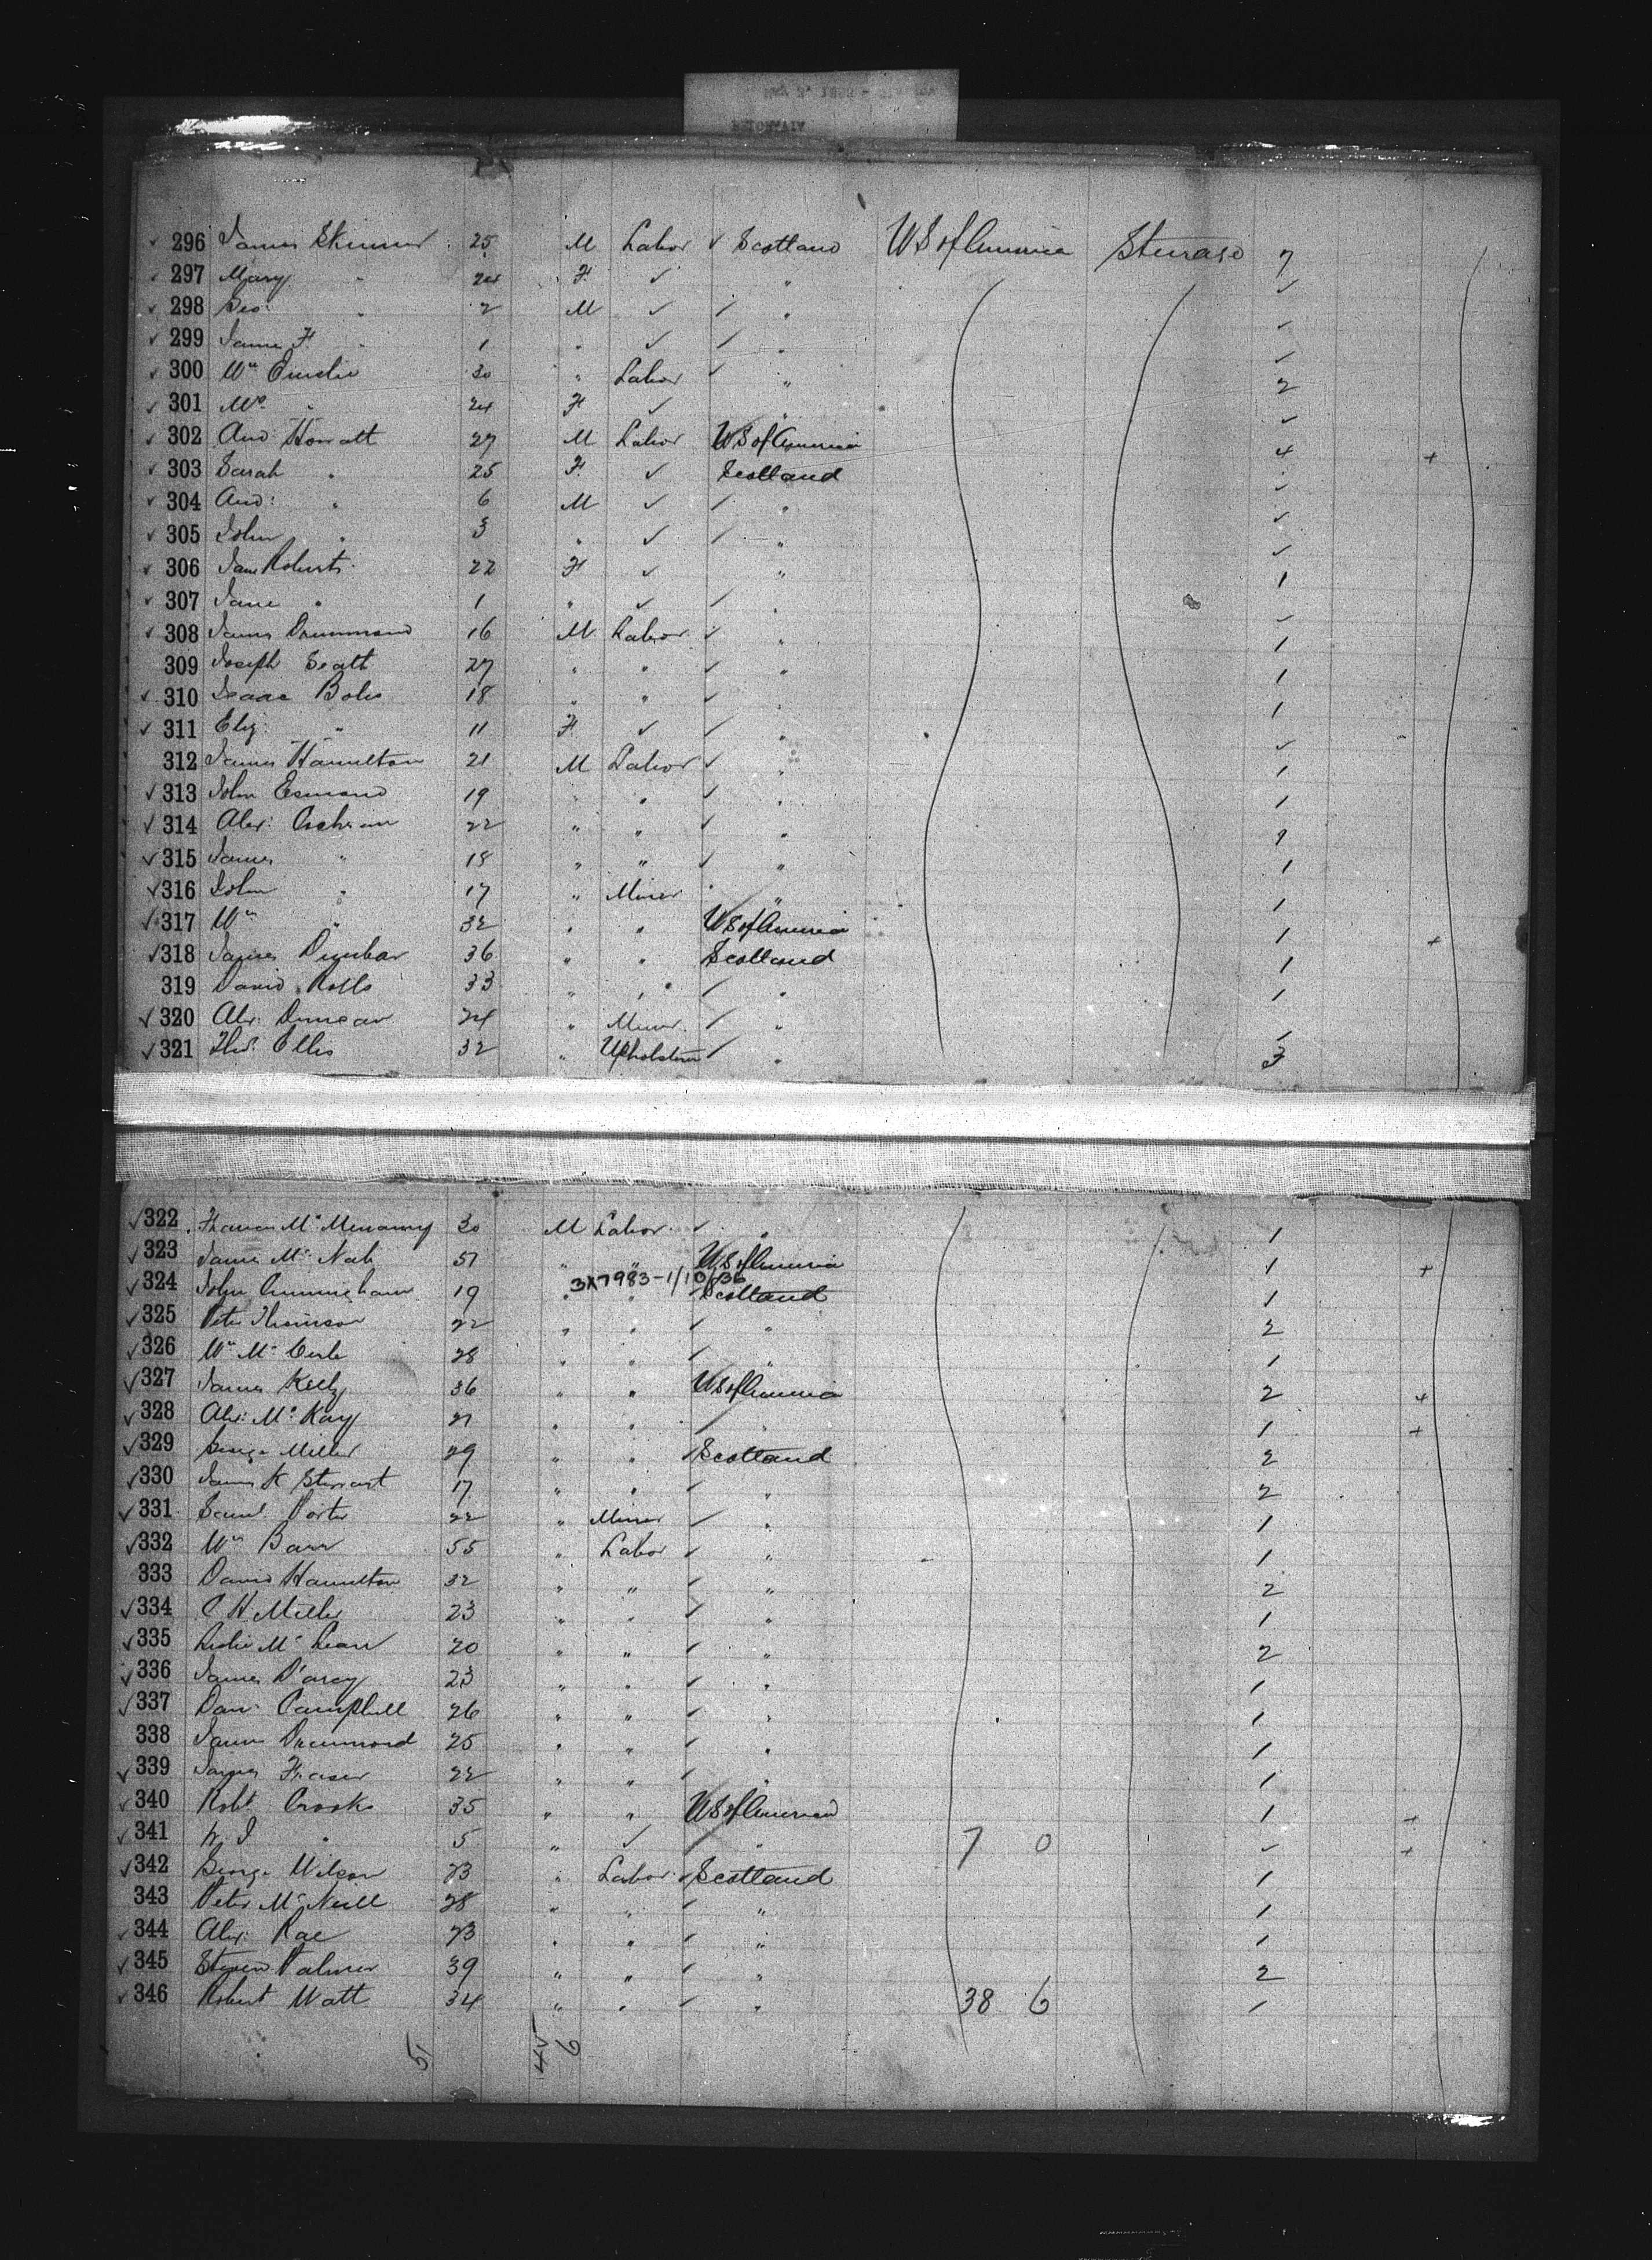 296 James Skinner 25 M Labor ✓ Scotland US of America Steerage 7
297 Mary " 24 F ✓ " ✓
298 Geo: " 2 M ✓ / " ✓
299 James F. " 1 " ✓ / " ✓
300 Wm Emslie 30 " Labor ✓ " 2
301 Mrs " 24 F ✓ " ✓
302 And: 27 M Labor US of America 4 +
303 Sarah " 25 F ✓ Scotland ✓
304 And: " 6 M ✓ / " ✓
305 John " 3 " ✓ / " ✓
306 Jane Roberts 22 F ✓ " 1
307 Jane " 1 " ✓ / " ✓
308 James Drummond 16 M Labor ✓ " 1
309 Joseph 27 " " ✓ " 1
310 Isaac 18 " " ✓ " 1
311 Eliz: " 11 F ✓ / " ✓
312 James Hamilton 21 M Labor ✓ " 1
313 John 19 " " ✓ " 1
314 Alex: Cochran 22 " " ✓ "
315 James " 18 " " ✓ " 1
316 John " 17 " Miner " 1
317 Wm " 32 " " US of America 1 +
318 James Dunbar 36 " " Scotland 1
319 David 33 " " / " 1
320 Alex: Duncan 24 " Miner / " 1
321 Ellis 32 " Upholsterer / " 3
322 30 M Labor ✓ " 1
323 James McNab 51 " " US of America 1 +
3X7983-1/10/36
324 John Cunningham 19 " " Scotland 1
325 Peter Thomson 22 " " / " 2
326 Wm 28 " " / " 1
327 James Kelly 36 " " US of America 2 +
328 Alex: McKay 21 " " / " 1 +
329 George Miller 29 " " Scotland 2
330 James K Stewart 17 " " / " 2
331 Saml. Porter 22 " Miner / " 1
332 Wm Barr 55 " Labor / " 1
333 David Hamilton 32 " " / " 2
334 C H Miller 23 " " / " 1
335 Leslie McLean 20 " " / " 2
336 James D'arcy 23 " " / " 1
337 Dan: Campbell 26 " " / " 1
338 James Drummond 25 " " / " 1
339 James Fraser 22 " " / " 1
340 Robt. Crooks 35 " " US of America 1 +
341 " 5 " ✓ / " 7 0 ✓ +
342 George Wilson 23 " Labor Scotland 1
343 Peter McNeill 28 " " / " 1
344 Alex: Rae 23 " " / " 1
345 Steven Palmer 39 " " / " 2
346 Robert Watt 34 " " / " 38 6 1
51 45 6